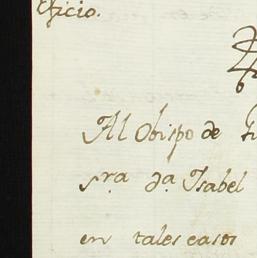 Oficio.
Al Obispo de
sra. da. Isabel
en tales casos